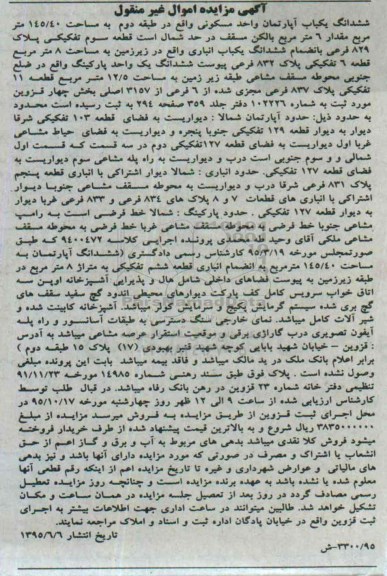 آگهی مزایده اموال غیر منقول
ششدانگ یکباب آپارتمان واحد مسکونی واقع در طبقه دوم به مساحت ۱۴۵/۴۰ متر
مربع مقدار ۶ متر مربع بالکن مسقف در حد شمال است قطعه سوم تفکیکی پلاک
۸۲۹ فرعی بانضمام ششدانگ یکباب انباری واقع در زیرزمین به مساحت ۸ متر مربع
قطعه ۶ تفکیکی پلاک ۸۳۲ فرعی پیوست ششدانگ یک واحد پارکینگ واقع در ضلع
جنوبی محوطه مسقف مشاعی طبقه زیر زمین به مساحت ۱۲/۵ متر مربع قطعه ۱۱
تفکیکی پلاک ۸۳۷ فرعی مجزی شده از ۶ فرعی از ۳۱۵۷ اصلی بخش چهار قزوین
مورد ثبت به شماره ۱۰۲۲۲۶ دفتر جلد ۳۵۹ صفحه ۲۹۴ به ثبت رسیده است محدود
به حدود ذیل: حدود آپارتمان شمالا : دیواریست به فضای قطعه ۱۰۳ تفکیکی شرقا
دیوار به دیوار قطعه ۱۲۹ تفکیکی جنوبا پنجره و دیواریست به فضای حیاط مشاعی
غربا اول دیواریست به فضای قطعه ۱۲۷تفکیکی دوم در سه قسمت که قسمت اول
شمالی و و سوم جنوبی است درب و دیواریست به راه پله مشاعی سوم دیواریست به
فضای قطعه ۱۲۷ تفکیکی. حدود انباری : شمالا دیوار اشتراکی با انباری قطعه پنجم
پلاک ۸۳۱ فرعی شرقا درب و دیواریست به محوطه مسقف مشاعی جنوبا دیوار
اشتراکی با انباری های قطعات ۷ و ۸ پلاک های ۸۳۴ فرعی و ۸۳۳ فرعی غربا دیوار
به دیوار قطعه ۱۲۷ تفکیکی . حدود پارکینگ : شمالا خط فرضی است به رامپ
مشاعی جنوبا خط فرضی به محوطه مسقف مشاعی غربا خط فرضی به محوطه مسقف
مشاعی ملکی آقای وحید پرونده اجرایی کلاسه ۹۴۰۰۴۷۲ که طبق
صورتمجلس مورخه ۹۵/۳/۱۹ کارشناس رسمی دادگستری (ششدانگ آپارتمان به
مساحت ۱۴۵/۴۰ مترمربع به انضمام انباری قطعه ششم تفکیکی به متراژ ۸ متر مربع در
طبقه زیرزمین به پیوست فضاهای داخلی شامل هال و پذیرایی آشپزخانه اوپن سه
اتاق خواب سرویس کامل کف پارکت دیوارهای محیطی اندود گچ سفید سقف های
گچ بری شده سیستم گرمایش پکیج و سرمایش کولر میباشد. آشپزخانه کابینت شده و
شیر آلات کامل میباشد. نمای خارجی سنگ دسترسی به طبقات آسانسور و راه پله
آیفون تصویری درب گاراژی برقی و موقعیت استقرار عرصه مشاعی میباشد به آدرس
: قزوین – خیابان شهید بابایی کوچه شهید قنبر بهبودی (۱۷) پلاک ۱۵ طبقه دوم )
برابر اعلام بانک ملک در ید مالک میباشد و فاقد بیمه میباشد بابت این پرونده مبلغی
وصول نشده است . پلاک فوق طبق سند رهنی شماره ۱۴۹۸۵ مورخه ۹۱/۱۱/۲۳
تنظیمی دفتر خانه شماره ۲۳ قزوین در رهن بانک رفاه میباشد. در قبال طلب توسط
کارشناس ارزیابی شده از ساعت ۹ الی ۱۲ ظهر روز چهارشنبه مورخه ۹۵/۱۰/۱۷ در
محل اجرای ثبت قزوین از طریق مزایده به فروش میرسد مزایده از مبلغ
۳۸۳۵۰۰۰۰۰۰ ریال شروع و به بالاترین قیمت پیشنهاد شده از طرف خریدار فروخته
میشود فروش کلا نقدی میباشد بدهی های مربوط به آب و برق و گاز اعم از حق
انشعاب یا اشتراک و مصرف در صورتی که مورد مزایده دارای آنها باشد و نیز بدهی
های مالیاتی و عوارض شهرداری و غیره تا تاریخ مزایده اعم از اینکه رقم قطعی آنها
معلوم شده یا نشده باشد به عهده برنده مزایده است و چنانچه روز مزایده تعطیل
رسمی مصادف گردد در روز بعد از تعصیل جلسه مزایده در همان ساعت و مکان
تشکیل خواهد شد. طالبین میتوانند در ساعت اداری جهت اطلاعات بیشتر به اجرای
ثبت قزوین واقع در خیابان پادگان اداره ثبت و اسناد و املاک مراجعه نمایند.
تاریخ انتشار ۱۳۹۵/۶/۶
۳۳۰۰/۹۵-ش